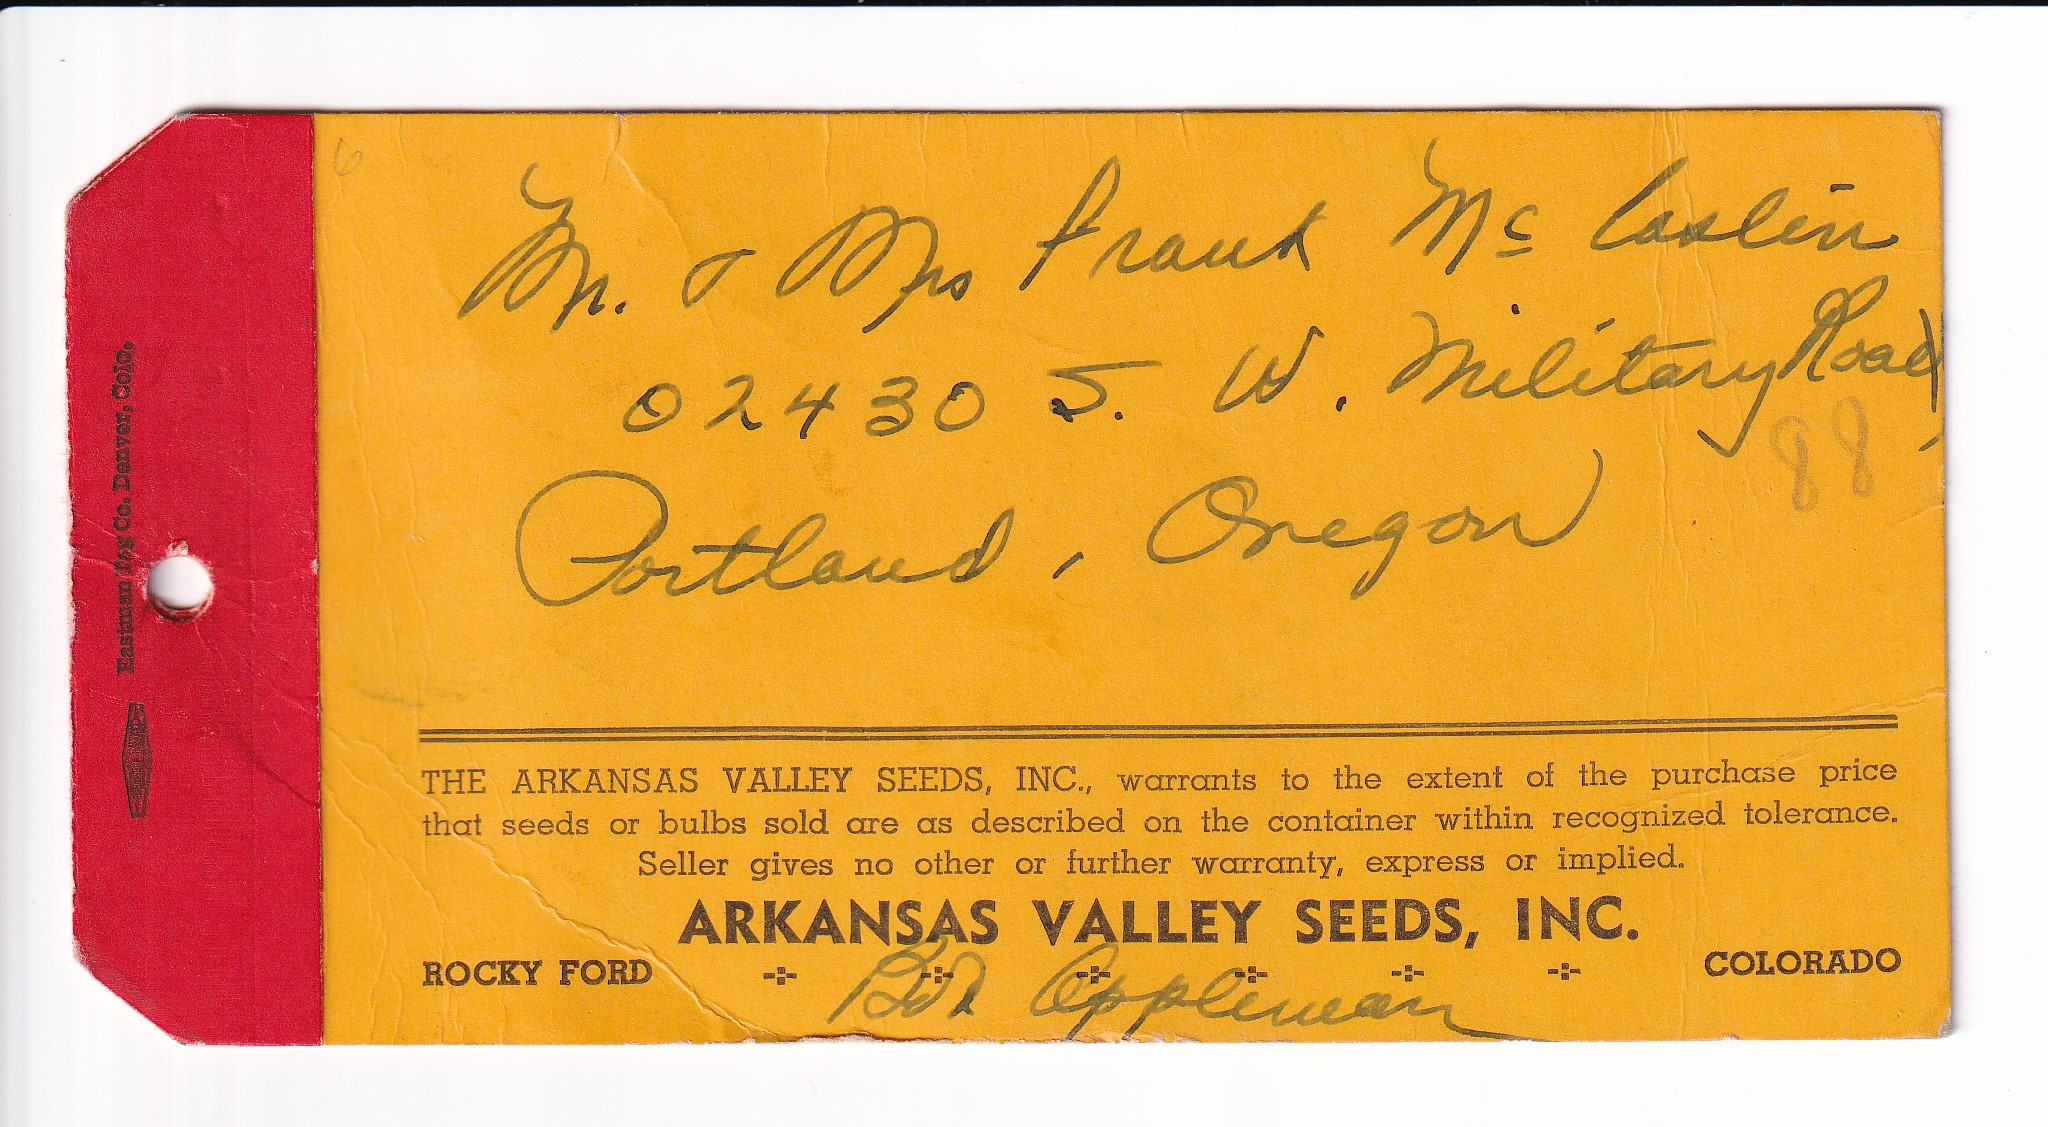 6
Mr. & Mrs Frank Mc Caslin
02430 S. W. Military Road,
88
Portland, Oregon
Eastman Tag Co. Denver, Colo.
THE ARKANSAS VALLEY SEEDS, INC., warrants to the extent of the purchase price
that seeds or bulbs sold are as described on the container within recognized tolerance.
Seller gives no other or further warranty, express or implied.
ARKANSAS VALLEY SEEDS, INC.
ROCKY FORD COLORADO
Bob Appleman